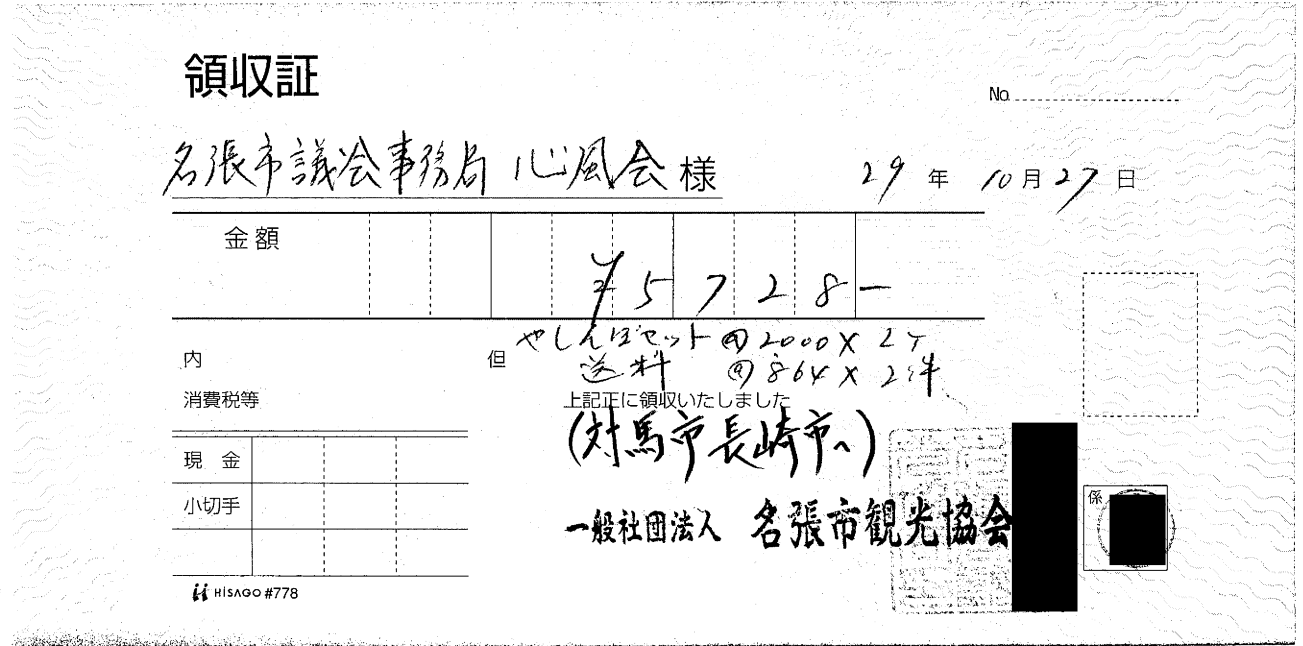 領収証
No.
名張市議会事務局 心風会 様
29年 10月27日
金額
¥5728-
内
但 やしんぼセット @2000×2ケ
送料 @864×2件
消費税等
上記正に領収いたしました
(対馬市長崎市へ)
現金
小切手
一般社団法人 名張市観光協会
係
HISAGO #778